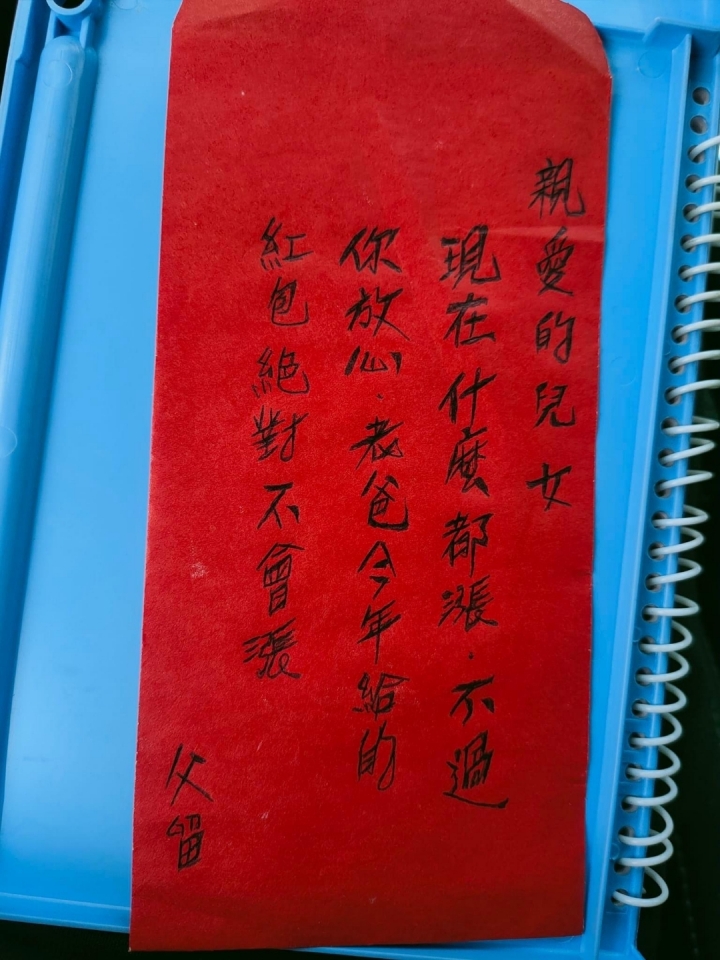 親愛的兒女
現在什麼都漲.不過
你放心.老爸今年給的
紅包絕對不會漲
父留